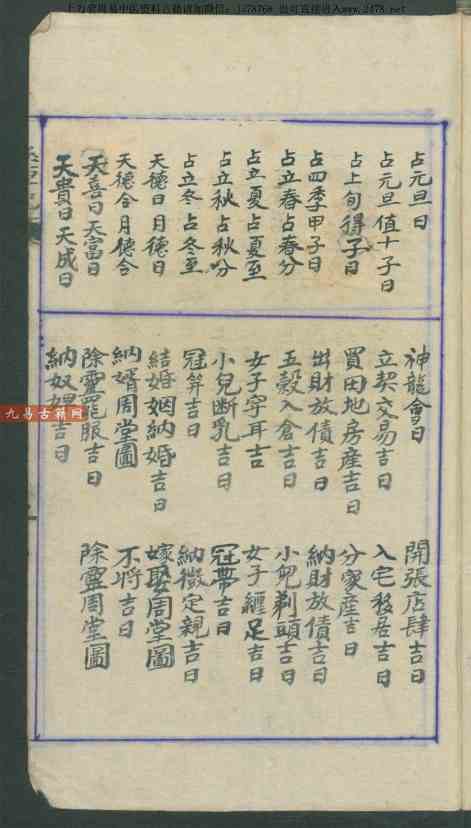 占元旦日
占元旦值十子日
占上旬得子日
占四季甲子日
占立春占春分
占立夏占夏至
占立秋占秋分
占立冬占冬至
天德日月德日
天德合月德合
天喜日天富日
天貴日天成日
神龍會日
立契交易吉日
買田地房產吉日
出財放債吉日
五穀入倉吉日
女子穿耳吉
小兒断乳吉日
冠笄吉日
結婚姻納婚吉日
納婿周堂圖
除靈罷服吉日
納奴婢吉日
開張店肆吉日
入宅移居吉日
分家產吉日
納財放債吉日
小兒剃頭吉日
女子纏足吉日
冠帶吉日
納徵定親吉日
嫁娶周堂圖
不将吉日
除靈周堂圖
九易古籍网